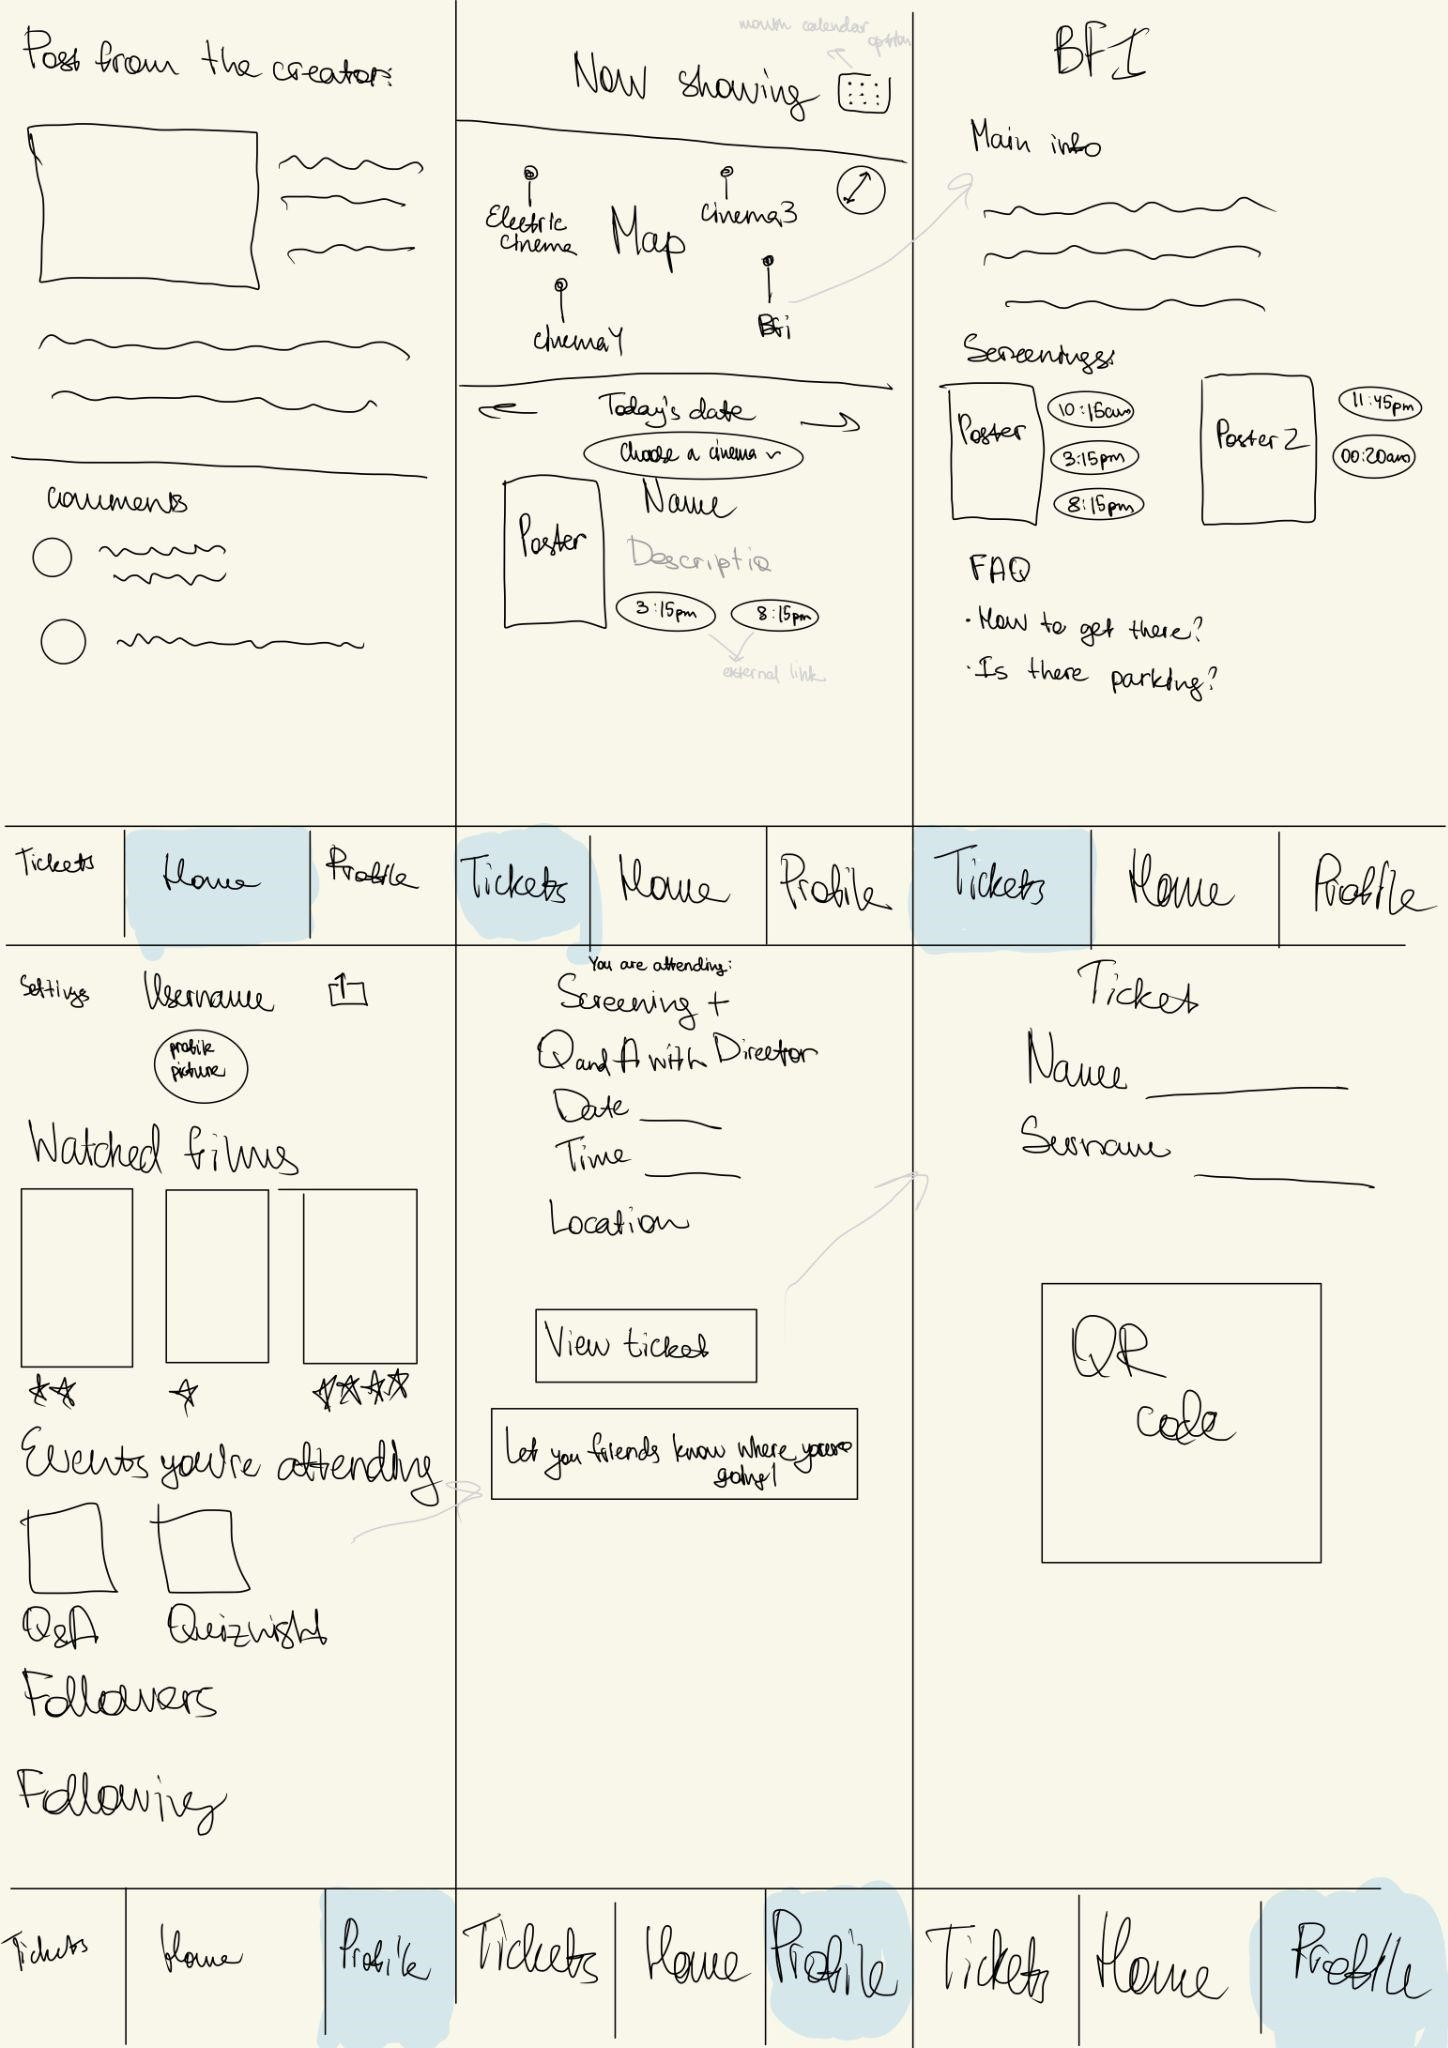 Post from the creator:
Comments
Tickets
Home
Profile
month calendar
option
Now showing
Electric
cinema
cinema3
Map
cinema4
Bfi
Today's date
choose a cinema
Poster
Name
Descriptio
3:15pm
8:15pm
external link
Tickets
Home
Profile
BFI
Main info
Screenings:
Poster
10:15am
3:15pm
8:15pm
Poster 2
11:45pm
00:20am
FAQ
· How to get there?
· Is there parking?
Tickets
Home
Profile
Settings
Username
profile
picture
Watched films
Events you're attending
Q&A
Quiznight
Followers
Following
Tickets
Home
Profile
You are attending:
Screening +
Q and A with Director
Date
Time
Location
View ticket
Let you friends know where you're
going!
Tickets
Home
Profile
Ticket
Name
Surname
QR
code
Tickets
Home
Profile